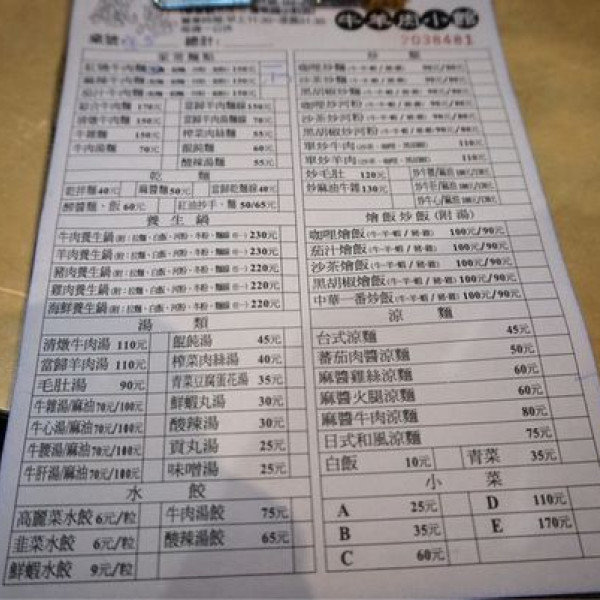 牛羊肉小館
桌號
總計:
2038481
家常麵點
紅燒牛肉麵
麻辣牛肉麵
茄汁牛肉麵
綜合牛肉麵 170元
當歸羊肉麵線 150元
清燉牛肉麵 150元
當歸牛肉麵線
牛雜麵 150元
榨菜肉絲麵 55元
牛肉湯麵 70元
餛飩麵 60元
酸辣湯麵 55元
乾 麵
乾拌麵 40元
麻醬麵 50元
當歸乾麵線 40元
飯 60元
紅油抄手、麵 50/65元
養生鍋
牛肉養生鍋 230元
羊肉養生鍋 230元
豬肉養生鍋 220元
雞肉養生鍋 220元
海鮮養生鍋 220元
湯 類
清燉牛肉湯 110元
餛飩湯 45元
當歸羊肉湯 110元
榨菜肉絲湯 40元
毛肚湯 90元
青菜豆腐蛋花湯 35元
牛雜湯/麻油 70元/100元
鮮蝦丸湯 30元
牛心湯/麻油 70元/100元
酸辣湯 30元
牛腰湯/麻油 70元/100元
貢丸湯 25元
牛肝湯/麻油 70元/100元
味噌湯 25元
水 餃
高麗菜水餃 6元/粒
牛肉湯餃 75元
韭菜水餃 6元/粒
酸辣湯餃 65元
鮮蝦水餃 9元/粒
炒 麵
咖哩炒麵
沙茶炒麵
黑胡椒炒麵
咖哩炒河粉
沙茶炒河粉
黑胡椒炒河粉
單炒牛肉 110元
單炒羊肉 110元
炒毛肚 120元
炒麻油牛雜 130元
燴飯炒飯(附湯)
咖哩燴飯 100元/90元
茄汁燴飯 100元/90元
沙茶燴飯 100元/90元
黑胡椒燴飯 100元/90元
中華一番炒飯 100元/90元
涼 麵
台式涼麵 45元
蕃茄肉醬涼麵 50元
麻醬雞絲涼麵 60元
麻醬火腿涼麵 60元
麻醬牛肉涼麵 80元
日式和風涼麵 75元
白飯 10元
青菜 35元
小 菜
A 25元
D 110元
B 35元
E 170元
C 60元